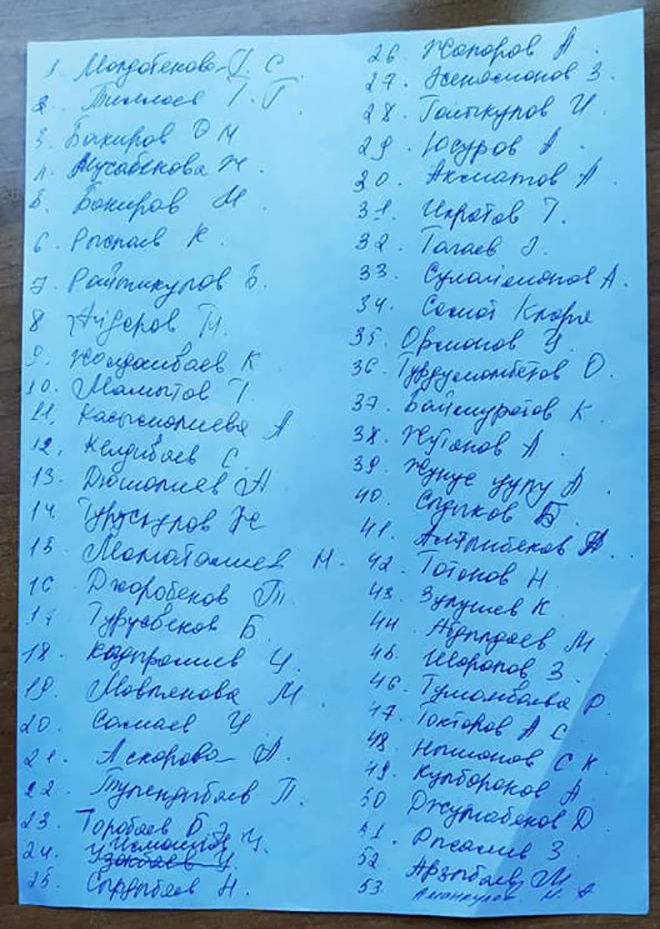 1. Молдобекова Г. С.
2. Тиллаев Т. Г.
3. Бакиров Э М
4. Мусабекова Ж.
5. Бакиров М.
6. Рыспаев К.
7. Раймкулов Б.
8 Айдаров М.
9. Жолдошбаев К
10. Мамытов Т.
11. Касымалиева А
12. Келдибаев С.
13. Дюшалиев А
14. Турускулов Ж
15. Маматалиев М.
16 Джоробеков Т.
17 Турусбеков Б.
18. Кадыралиев Ч.
19. Мавлянова М.
20. Самаев У.
21. Аскарова А.
22. Тулендыбаев П.
23. Торобаев Б Э
24. Исмаилов Ч.
25. Сырдыбаев Н.
26. Жапаров А.
27. Жеенасионов З.
28. Гаипкулов И.
29. Юсуров А.
30. Акматов А.
31. Икратов Т.
32. Тагаев Э.
33. Сулайманов А.
34. Самат Клара
35. Орманов У.
36. Турдумамбетов О.
37. Баймуратов К.
38. Жутанов А.
39. Жунус уулу А.
40. Сыдыков Б.
41. Алтыбеков А.
42. Тотонов Н.
43. Зулушев К.
44. Абдылдаев М.
45. Шарапов З.
46. Тумонбаева Р.
47. Токторов А С.
48. Нышанов С К.
49. Кулбораков А
50 Джумабеков Д
51. Рысалиев З.
52. Арзыбаев М
53. Аманкулов М. А